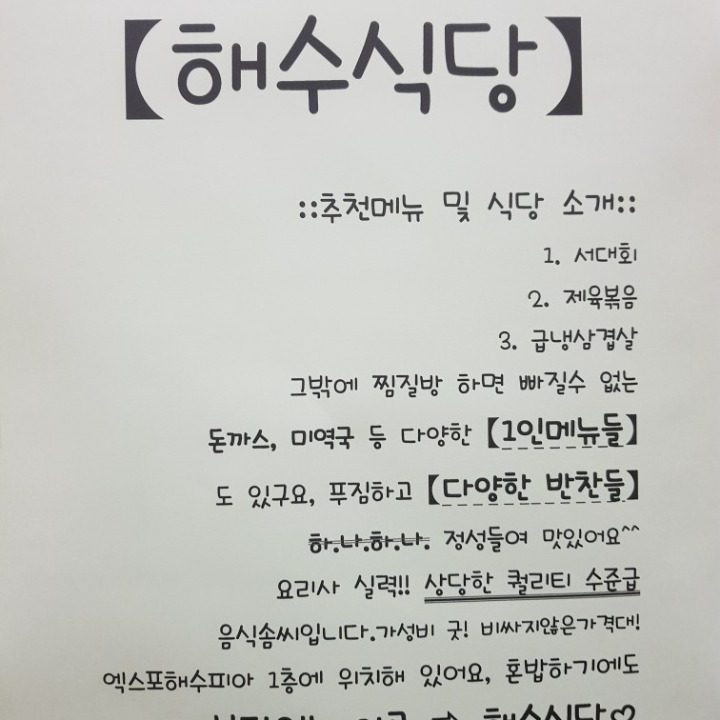 【해수식당】
::추천메뉴 및 식당 소개::
1. 서대회
2. 제육볶음
3. 급냉삼겹살
그밖에 찜질방 하면 빠질수 없는
돈까스, 미역국 등 다양한 【1인메뉴들】
도 있구요, 푸짐하고 【다양한 반찬들】
하.나.하.나. 정성들여 맛있어요^^
요리사 실력!! 상당한 퀄리티 수준급
음식솜씨입니다.가성비 굿! 비싸지않은가격대!
엑스포해수피아 1층에 위치해 있어요, 혼밥하기에도
⇒ 해수식당♡